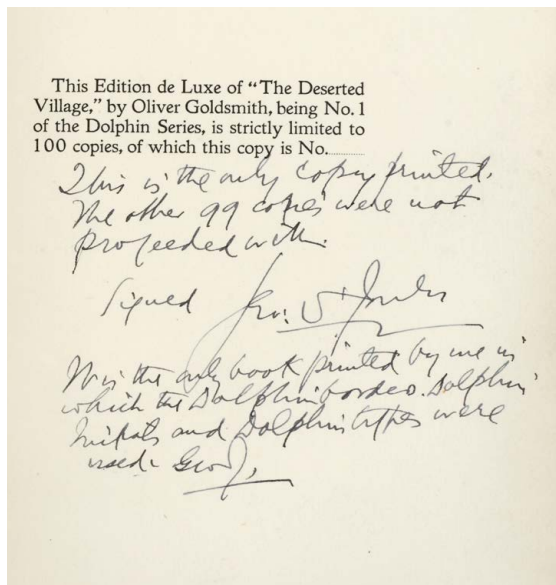 This Edition de Luxe of “The Deserted
Village,” by Oliver Goldsmith, being No. 1
of the Dolphin Series, is strictly limited to
100 copies, of which this copy is No..............
This is the only copy printed.
The other 99 copies were not
proceeded with.
Signed Geo: W Jones
is the only book printed by me in
which the Dolphin border. Dolphin
Initials and Dolphin types were
used.